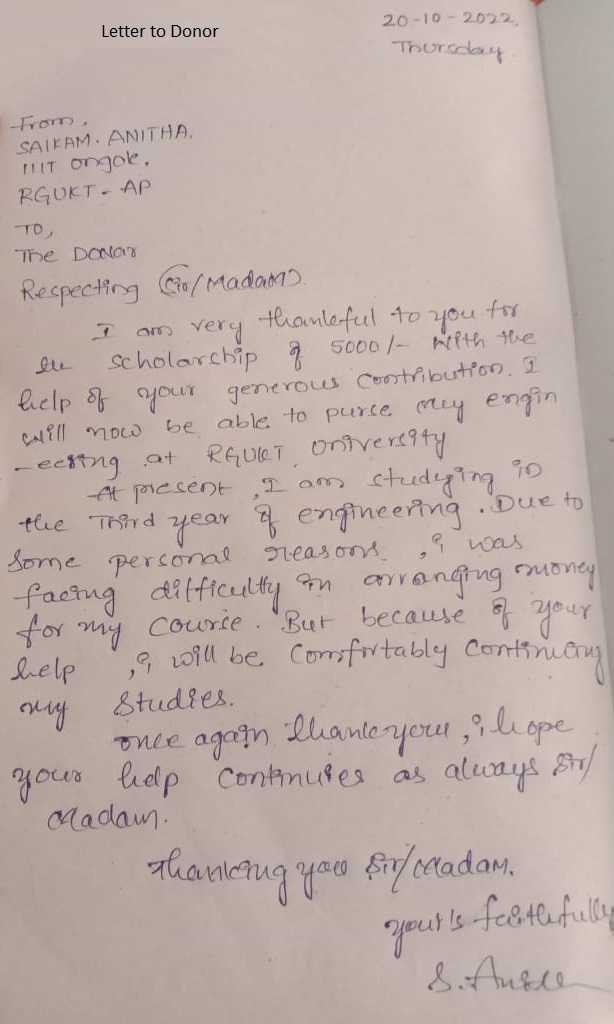 Letter to Donor
20-10-2022,
Thursday
From,
SAIKAM. ANITHA.
IIIT ongole.
RGUKT - AP
TO,
The Donar
Respecting (Sir/Madam)
I am very thankful to you for
scholarship of 5000/- with the
help of your generous contribution. I
will now be able to purse my engin
-eering at RGUKT University
At present, I am studying in
the Third year of engineering. Due to
some personal reasons, i was
facing difficulty in arranging money
for my course. But because of your
help, i will be comfortably continuing
my studies.
once again thankyou, i hope
your help continues as always Sir/
Madam.
Thanking you Sir/Madam.
your's faithfully
S.